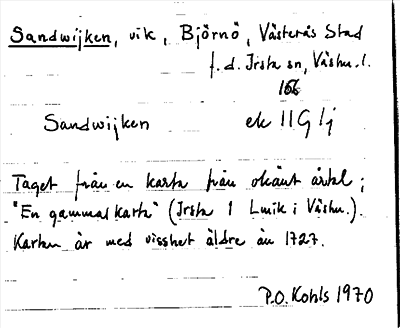 Sandwijken, vik, Björnö, Västerås Stad
f.d. Irsta sn, Västm. l.
166
Sandwijken ek 11G 1j
Taget från en karta från okänt årtal;
"En gammal karta" (Irsta 1 Lmk i Västm.).
Kartan är med visshet äldre än 1727.
P.O. Kohls 1970